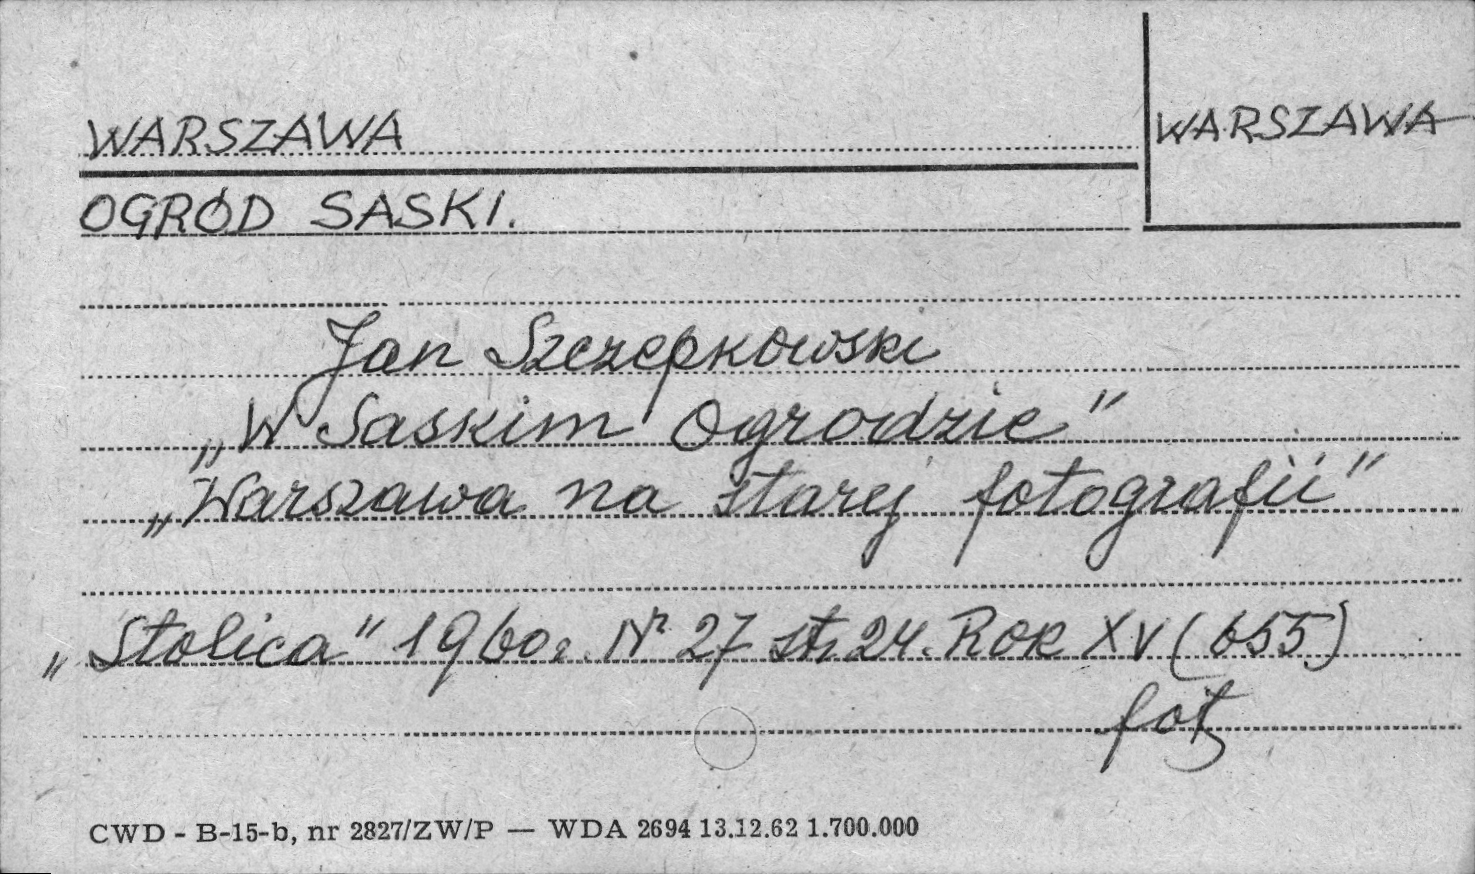 WARSZAWA
WARSZAWA
OGRÓD SASKI.
Jan Szczepkowski
„W Saskim Ogrodzie"
„Warszawa na starej fotografii"
„Stolica" 1960r. Nr 27 str. 24. Rok XV (655)
fot.
CWD - B-15-b, nr 2827/ZW/P — WDA 2694 13.12.62 1.700.000